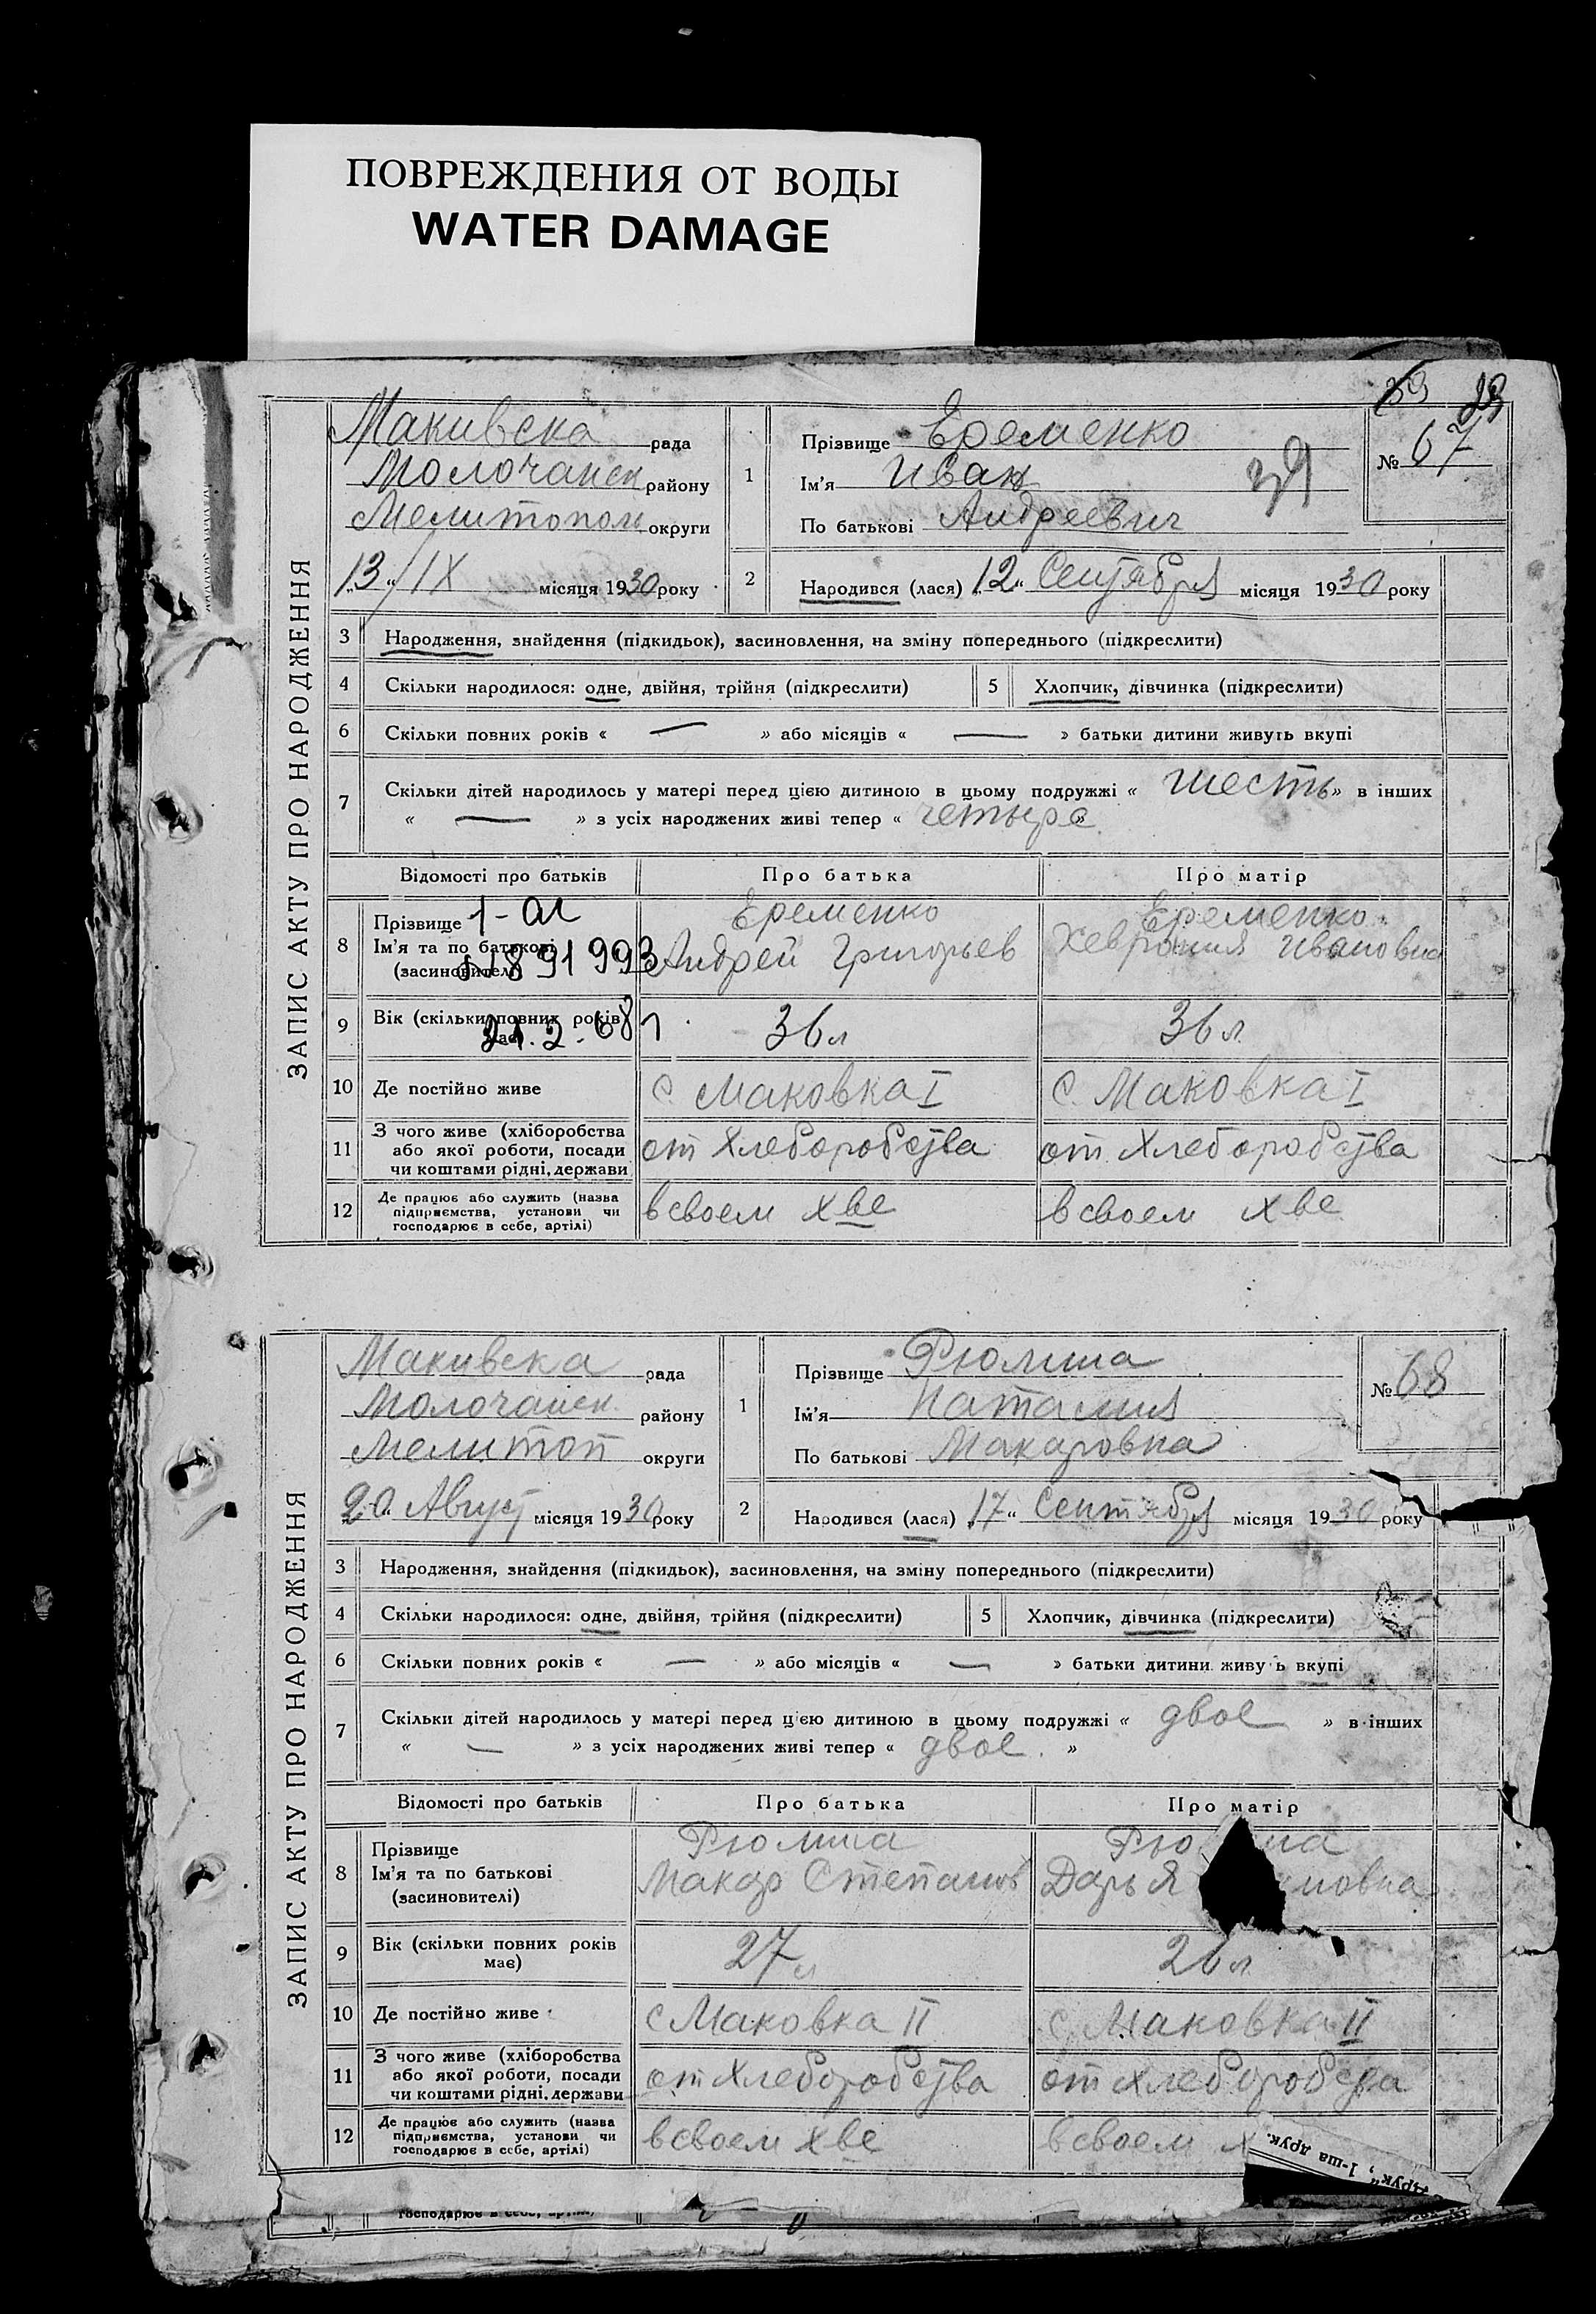 ПОВРЕЖДЕНИЯ ОТ ВОДЫ
WATER DAMAGE
39 23
ЗАПИС АКТУ ПРО НАРОДЖЕННЯ
Макивска рада
Молочанск району
Мелитопол округи
„13“/IX місяця 1930 року
1 Прізвище Еременко
Ім'я Иван
По батькові Андреевич
№ 67
2 Народився (лася) „12“ Сентября місяця 1930 року
3 Народження, знайдення (підкидьок), засиновлення, на зміну попереднього (підкреслити)
4 Скільки народилося: одне, двійня, трійня (підкреслити) 5 Хлопчик, дівчинка (підкреслити)
6 Скільки повних років « — » або місяців « — » батьки дитини живуть вкупі
7 Скільки дітей народилось у матері перед цією дитиною в цьому подружжі « шесть » в інших
« — » з усіх народжених живі тепер « четыре »
Відомості про батьків Про батька Про матір
8 Прізвище 1-ОЛ Еременко Еременко
Ім'я та по батькові Андрей Григорьев Хеврония Ивановна
(засновителі) 891993
9 Вік (скільки повних років має) 21.2.681 36 л 36 л
10 Де постійно живе с Маковка I с. Маковка I
11 З чого живе (хліборобства
або якої роботи, посади от Хлеборобства от Хлеборобства
чи коштами рідні, держави
12 Де працює або служить (назва
підприємства, установи чи в своем хве в своем хве
господарює в себе, артілі)
ЗАПИС АКТУ ПРО НАРОДЖЕННЯ
Макивска рада
Молочанск району
Мелитоп округи
„20“ Август місяця 1930 року
1 Прізвище Рюмина
Ім'я Наталия
По батькові Макаровна
№ 68
2 Народився (лася) „17“ Сентября місяця 1930 року
3 Народження, знайдення (підкидьок), засиновлення, на зміну попереднього (підкреслити)
4 Скільки народилося: одне, двійня, трійня (підкреслити) 5 Хлопчик, дівчинка (підкреслити)
6 Скільки повних років « — » або місяців « — » батьки дитини живу ь вкупі
7 Скільки дітей народилось у матері перед цією дитиною в цьому подружжі « двое » в інших
« — » з усіх народжених живі тепер « двое »
Відомості про батьків Про батька Про матір
8 Прізвище
Ім'я та по батькові Макар Степанов Дарья
(засиновителі)
9 Вік (скільки повних років має) 27 л 26 л
10 Де постійно живе с Маковка II с. Маковка II
11 З чого живе (хліборобства
або якої роботи, посади от Хлеборобства от Хлеборобства
чи коштами рідні, держави
12 Де працює або служить (назва
підприємства, установи чи в своем хве в своем х
господарює в себе, артілі)
друк“, 1-ша друк.
господарює в себе, артілі)